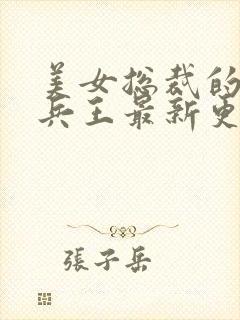 美女总裁的
兵王最新更
張子岳